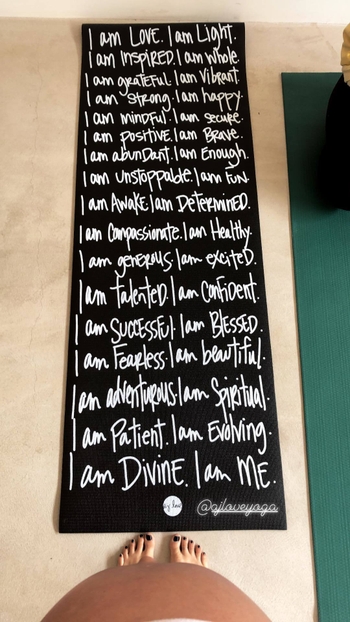 I am LOVE. I am Light.
I am INSPIRED. I am Whole.
I am grateful. I am Vibrant.
I am strong. I am happy.
I am mindful. I am secure.
I am positive. I am Brave.
I am abundant. I am Enough.
I am unstoppable. I am FUN.
I am Awake. I am Determined.
I am Compassionate. I am Healthy.
I am generous. I am excited.
I am talented. I am Confident.
I am Successful. I am Blessed.
I am Fearless. I am beautiful.
I am adventurous. I am Spiritual.
I am Patient. I am Evolving.
I am Divine. I am ME.
aj love @ajloveyoga